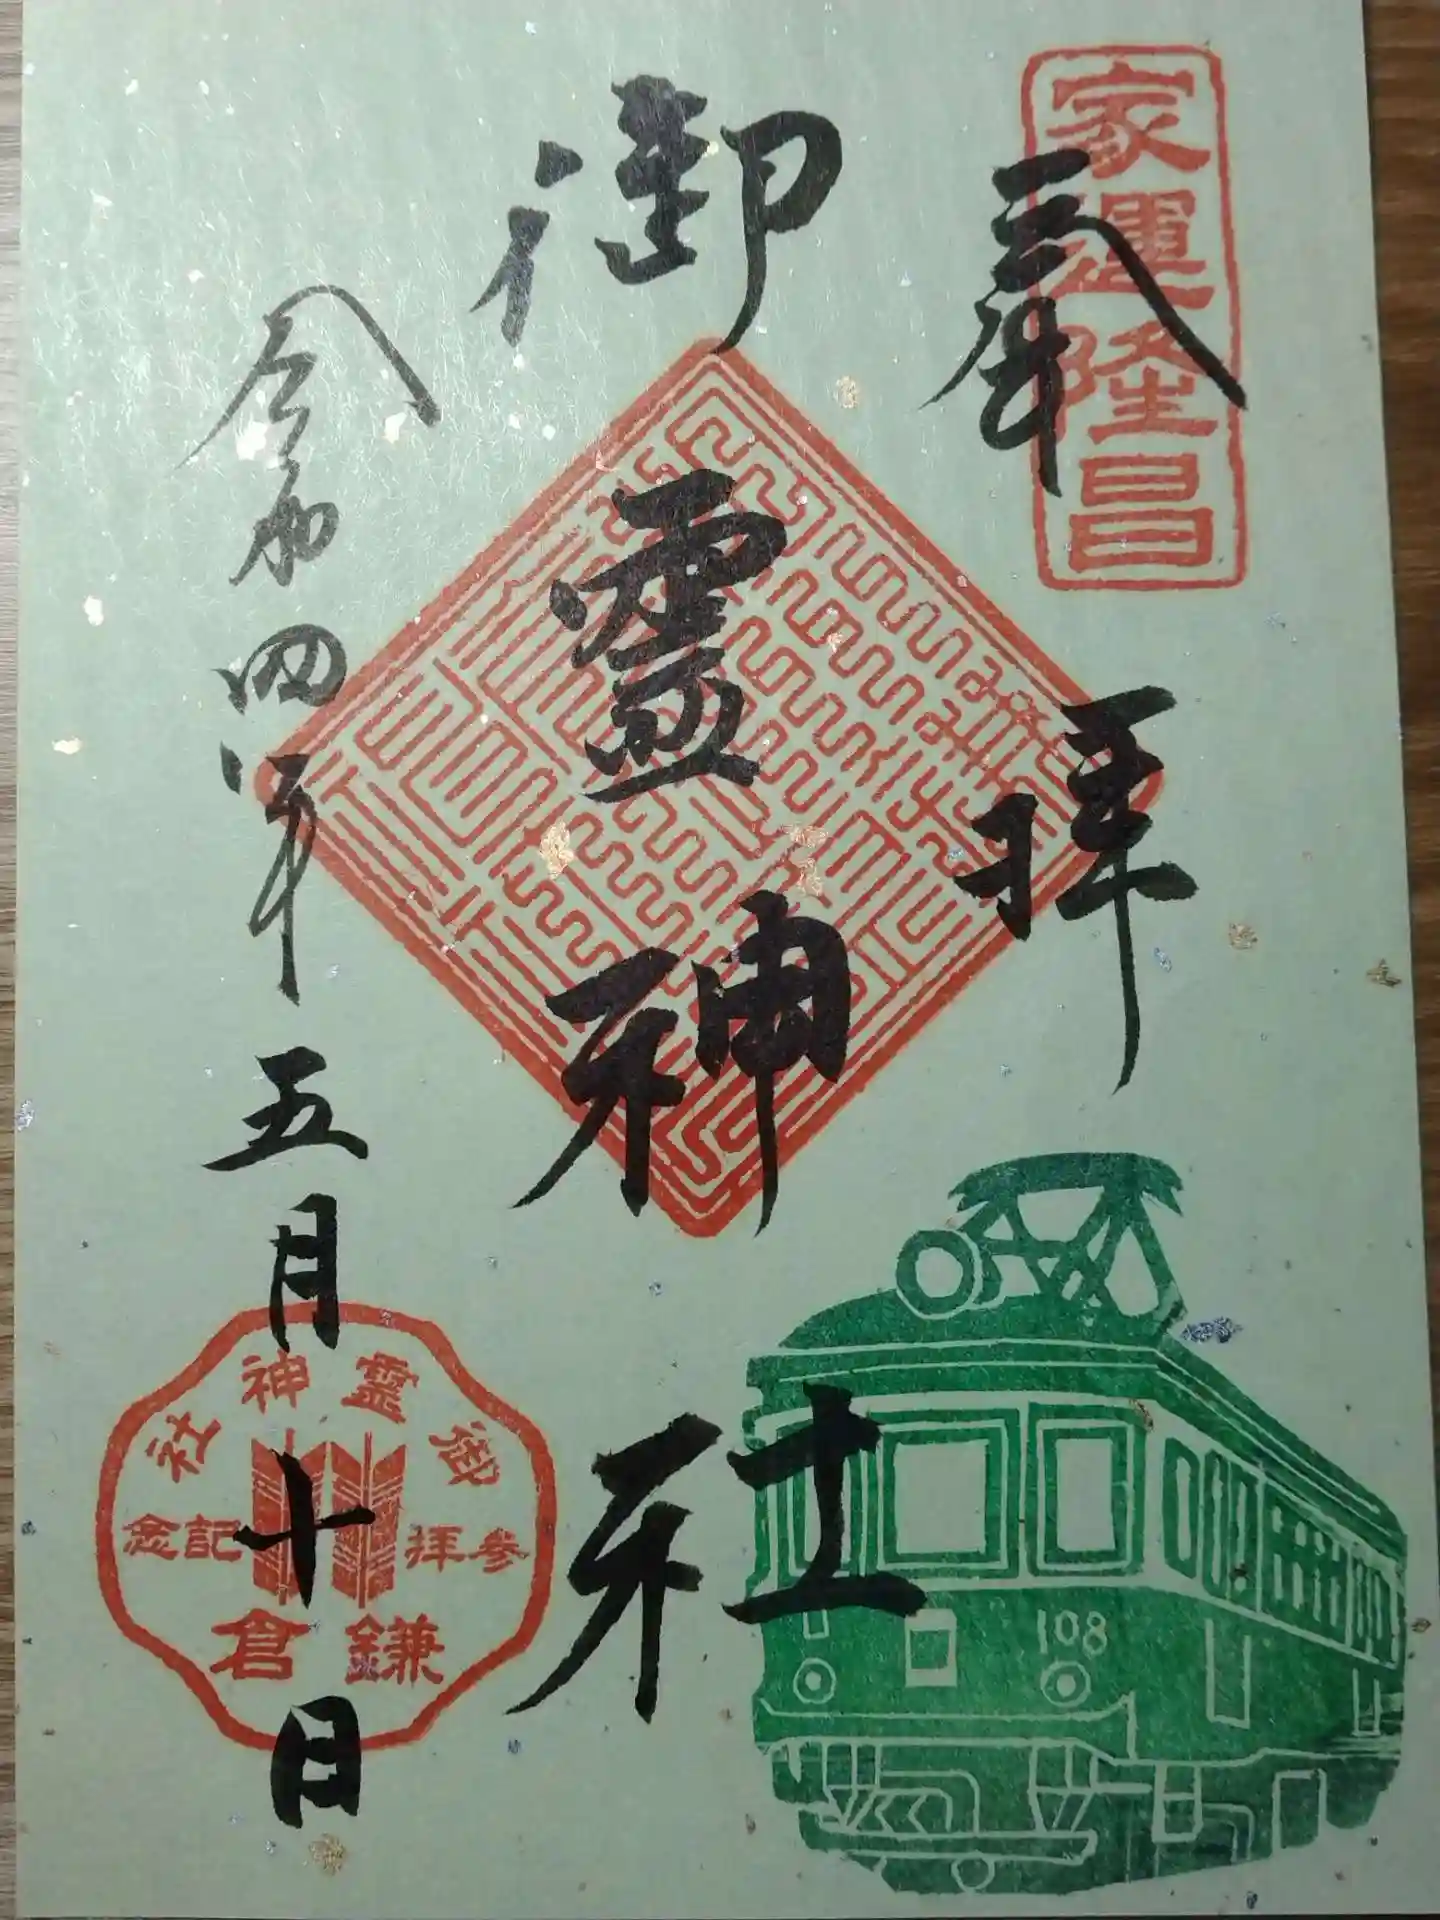 家運隆昌
奉拝
御靈神社
令和四年五月十日
御霊神社
参拝記念
鎌倉
108